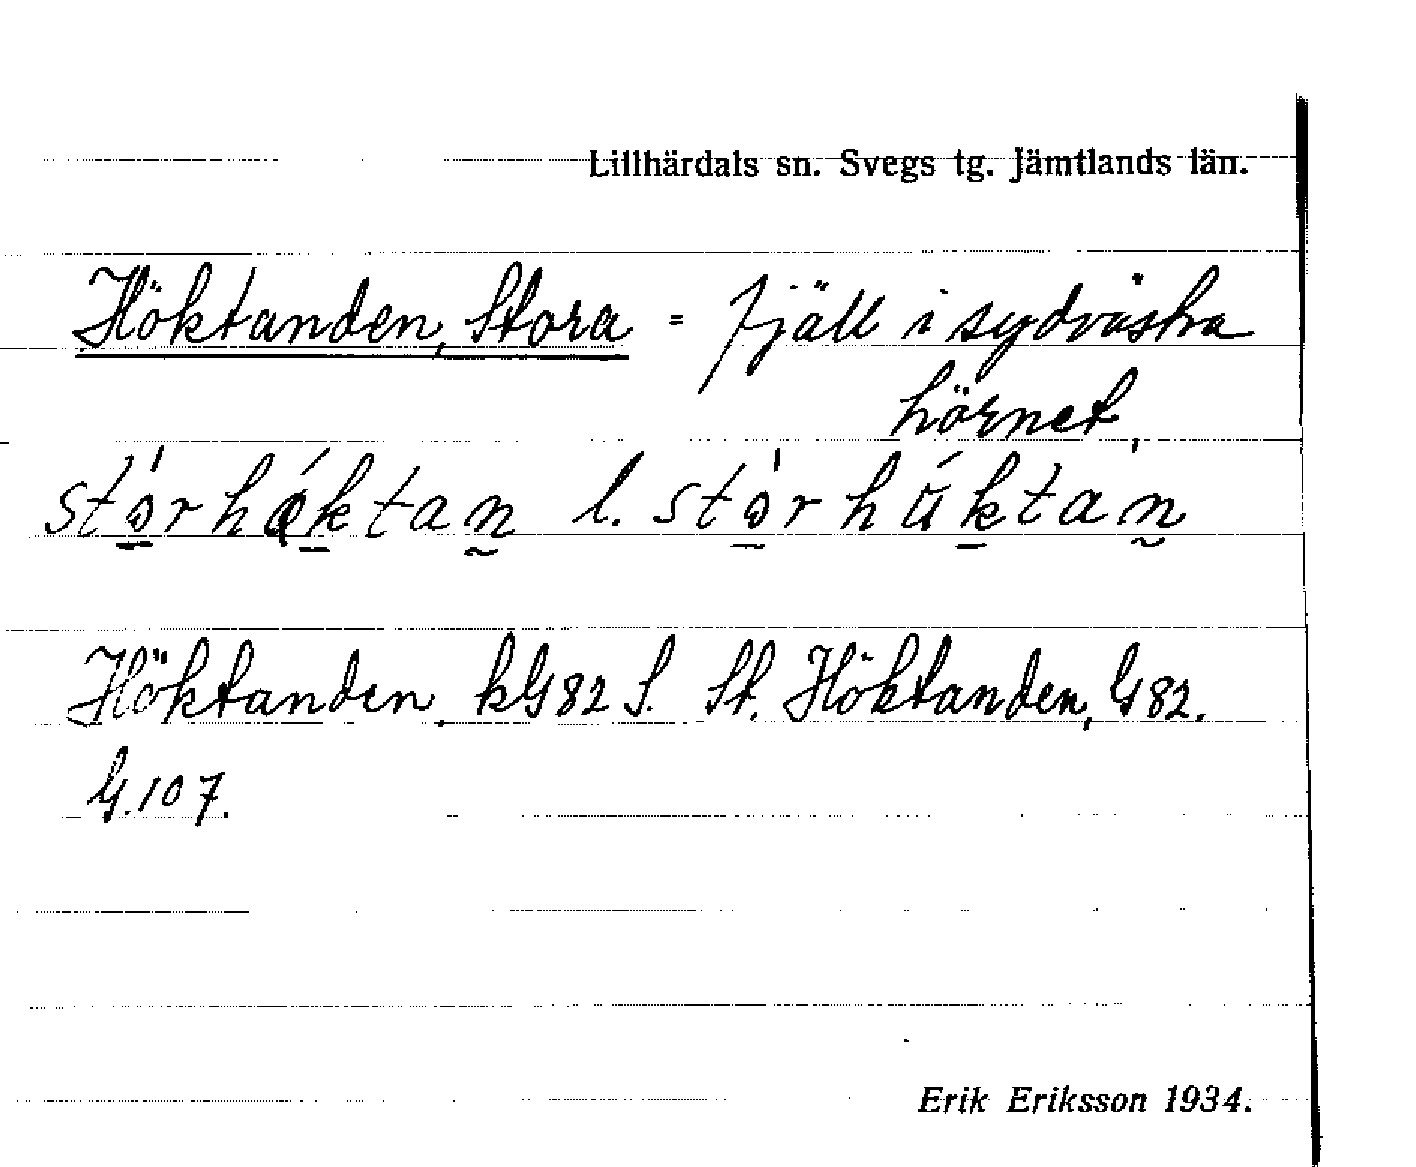 Lillhärdals sn. Svegs tg. Jämtlands län.
Höktanden, Stora = fjäll i sydvästra
hörnet,
l.
Höktanden kG82 S. St. Höktanden, G82.
G.107.
Erik Eriksson 1934.